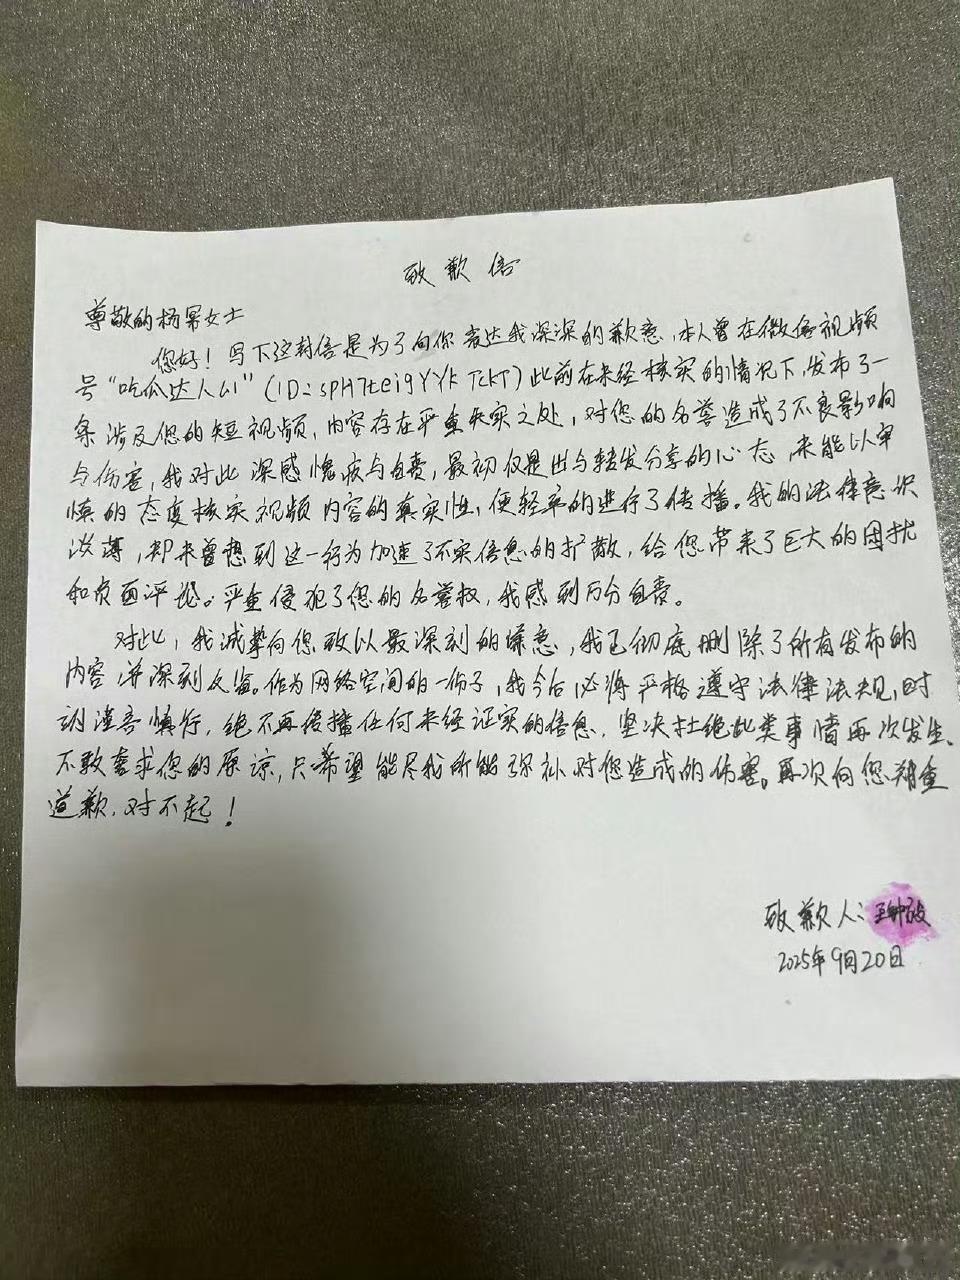 致歉信
尊敬的杨幂女士
您好！写下这封信是为了向你表达我深深的歉意，本人曾在微信视频
号“吃瓜达人山”(ID=sPH7tei9YYkTCkT)此前在未经核实的情况下，发布了一
条涉及您的短视频，内容存在严重失实之处，对您的名誉造成了不良影响
与伤害，我对此深感愧疚与自责，最初仅是出与转发分享的心态，未能以审
慎的态度核实视频内容的真实性，便轻率的进行了传播。我的法律意识
淡薄，却未曾想到这一行为加速了不实信息的扩散，给您带来了巨大的困扰
和负面评论。严重侵犯了您的名誉权，我感到万分自责。
对此，我诚挚向您致以最深刻的歉意，我已彻底删除了所有发布的
内容并深刻反省。作为网络空间的一份子，我今后必将严格遵守法律法规，时
刻谨言慎行，绝不再传播任何未经证实的信息，坚决杜绝此类事情再次发生、
不敢奢求您的原谅，只希望能尽我所能弥补对您造成的伤害。再次向您郑重
道歉，对不起！
致歉人：
2025年9月20日